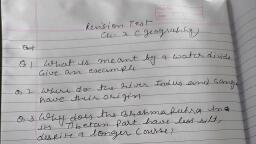 Revision Test
Q 1 What is meant by a water divide
Give an example
Q 2 Where do the River Indus and Ganga
have their origin
Q 3 Why does the Brahmaputra in
its Tibetan Part have less silt,
despite a longer course?